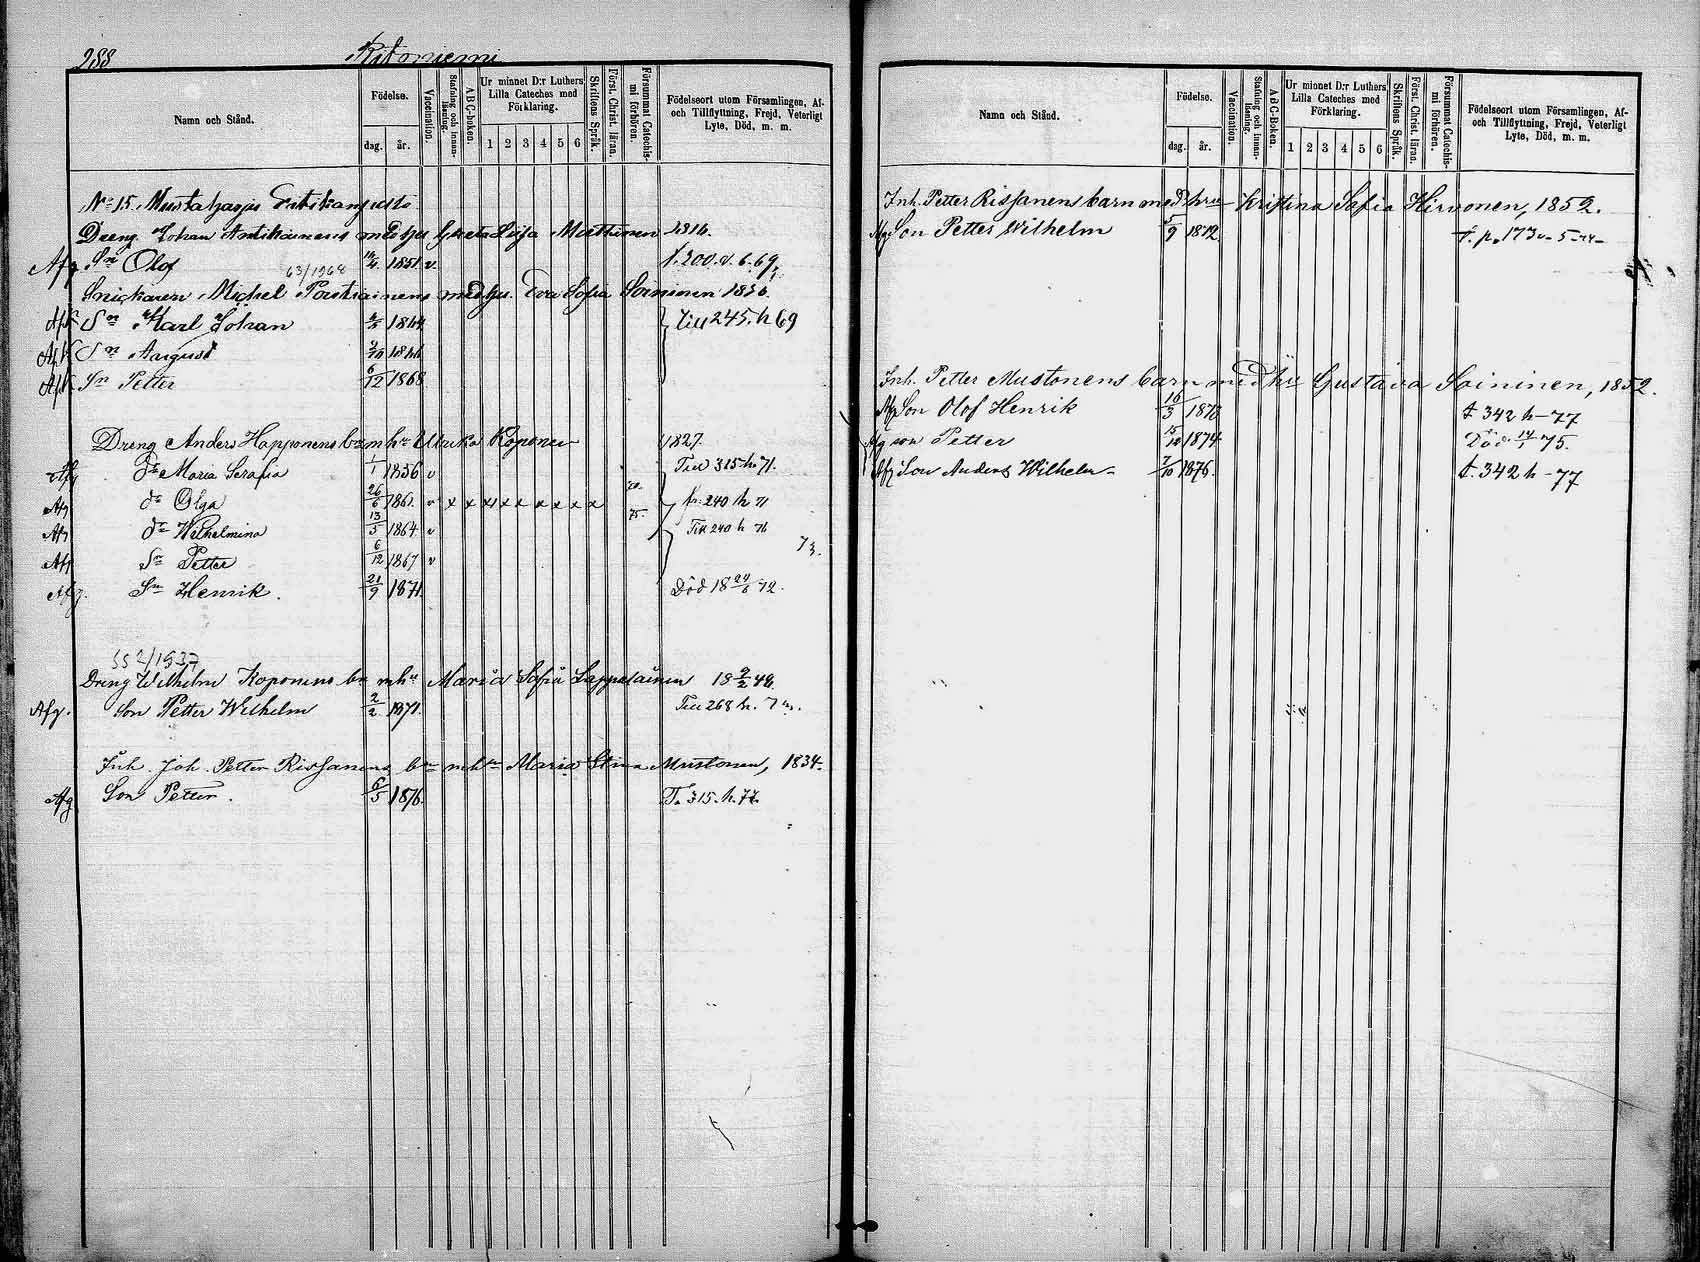 288 Ritoniemi
Namn och Stånd.
Födelse.
dag. år.
Vaccination.
Stafning och innanläsning.
A B C-boken.
Ur minnet D:r Luthers Lilla Cateches med Förklaring.
1 2 3 4 5 6
Skriftens Språk.
Först. Christ. läran.
Försummat Catechismi förhören.
Födelseort utom Församlingen, Af- och Tillflyttning, Frejd, Veterligt Lyte, Död, m. m.
No 15. Mustaharju
Dreng Johan Antikainens med hu Greta Lisa Mustonen 1816.
Afg Sn Olof 1851 v f. 200. v. 6. 69,
63/1968
Snickaren Michel Poutiainens med hu. Eva Sofia Soininen 1836.
Afl Sn Karl Johan 1864 Till 245. h 69
Afl Sn August 2/10 1866
Afl Sn Petter 6/12 1868
Dreng Anders Happonens bn m hu Ulrika Koponen 1827.
Afg dr Maria Serafia 1/1 1856 v Till 315 h. 71.
Afg dr Olga 26/6 1861 v x x x x x x x x x fr. 240 h 71
Afg dr Wilhelmina 13/5 1864 v 75. Till 240 h 71
73.
Afg Sn Petter 6/12 1867 v
Afg. Sn Henrik. 21/9 1871 Död 18 24/6 72.
552/1937
Dreng Wilhelm Koponens bn m hu Maria Sofia Lappalainen 18 2/2 48.
Afg. Son Petter Wilhelm 2/2 1871. Till 268 h.
Inh. Joh. Petter Rissanens bn m hu Maria Stina Mustonen, 1834.
Afg Son Petter. 6/5 1876. T. 315. h. 77.
Namn och Stånd.
Födelse.
dag. år.
Vaccination.
Stafning och innanläsning.
A B C-Boken.
Ur minnet D:r Luthers Lilla Cateches med Förklaring.
1 2 3 4 5 6
Skriftens Språk.
Först. Christ. läran.
Försummat Catechismi förhören.
Födelseort utom Församlingen, Af- och Tillflyttning, Frejd, Veterligt Lyte, Död, m. m.
Inh. Petter Rissanens barn med hru Kristina Sofia Hirvonen, 1852.
Afg Son Petter Wilhelm 5/9 1872 f. p. 173
Inh. Petter Mustonens barn med hu Gustava Soininen, 1852.
Afg Son Olof Henrik 16/3 1873 t. 342 h - 77
Afg son Petter 15/12 1874 Död 14/1 75.
Afg Son Anders Wilhelm 7/10 1876. t. 342 h - 77